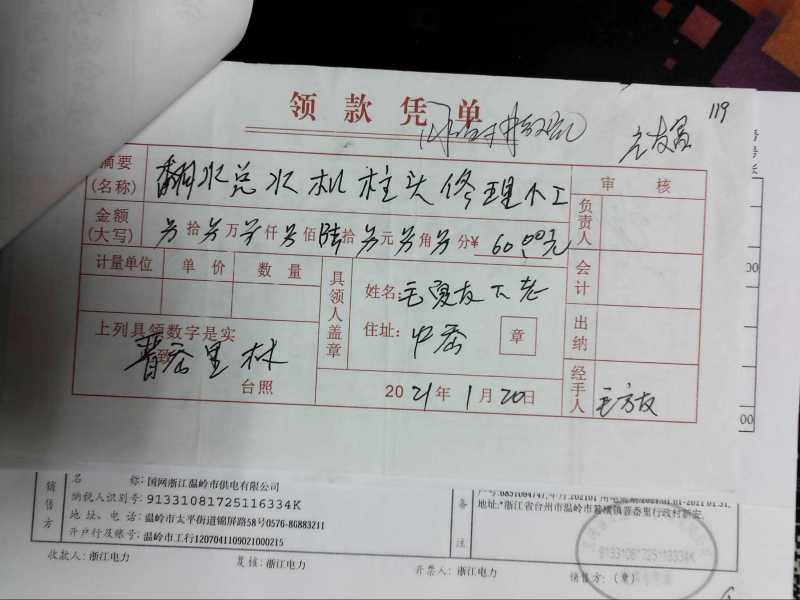 领款凭单
119
摘要
(名称)
水总水机柱头修理人工
审 核
金额
(大写)
另拾另万另仟另佰陆拾另元另角另分¥ 60.00元
负责人
计量单位 单价 数量
具领人盖章
姓名: 毛夏友
会计
住址: 中岙 章
出纳
上列具领数字是实
致
晋岙里村
台照
2021年1月20日
经手人 毛方友
销售方
名 称: 国网浙江温岭市供电有限公司
纳税人识别号: 91331081725116334K
地址、电话: 温岭市太平街道锦屏路58号0576-86883211
开户行及账号: 温岭市工行1207041109021000215
备注
地址:*浙江省台州市温岭市箬横镇晋岙里行政村新宏
91331081725116334K
收款人: 浙江电力 复核: 浙江电力 开票人: 浙江电力 销售方: (章)